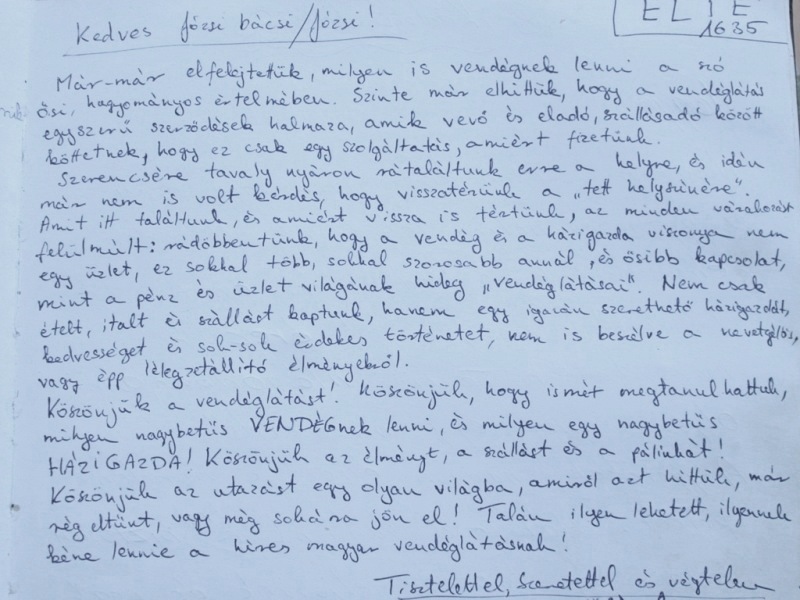 ELTE
1635
Kedves Józsi bácsi/Józsi!
Már-már elfelejtettük, milyen is vendégnek lenni a szó
ősi, hagyományos értelmében. Szinte már elhittük, hogy a vendéglátás
egyszerű szerződések halmaza, amik vevő és eladó, szállásadó között
köttetnek, hogy ez csak egy szolgáltatás, amiért fizetünk.
Szerencsére tavaly nyáron rátaláltunk erre a helyre, és idén
már nem is volt kérdés, hogy visszatérünk a „tett helyszínére".
Amit itt találtunk, és amiért vissza is tértünk, az minden várakozást
felülmúlt: rádöbbentünk, hogy a vendég és a házigazda viszonya nem
egy üzlet, ez sokkal több, sokkal szorosabb annál, és ősibb kapcsolat,
mint a pénz és üzlet világának hideg „vendéglátásai". Nem csak
ételt, italt és szállást kaptunk, hanem egy igazán szerethető házigazdát,
kedvességet és sok-sok érdekes történetet, nem is beszélve a nevetős,
vagy épp lélegzetállító élményekről.
Köszönjük a vendéglátást! Köszönjük, hogy ismét megtanulhattuk,
milyen nagybetűs VENDÉGnek lenni, és milyen egy nagybetűs
HÁZIGAZDA! Köszönjük az élményt, a szállást és a pálinkát!
Köszönjük az utazást egy olyan világba, amiről azt hittük, már
rég eltűnt, vagy még sokára jön el! Talán ilyen lehetett, ilyennek
kéne lennie a híres magyar vendéglátásnak!
Tisztelettel, szeretettel és végtelen